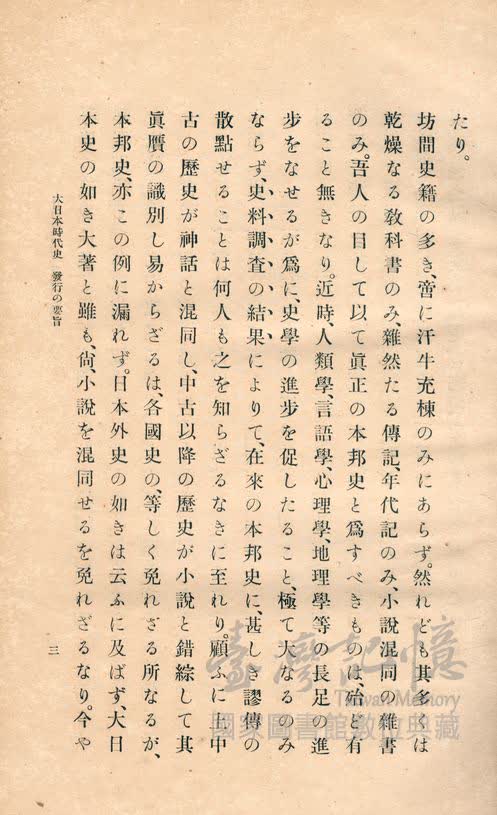 たり。
坊間史籍の多き、啻に汗牛充棟のみにあらず。然れども其多くは
乾燥なる敎科書のみ、雜然たる傳記、年代記のみ、小說混同の雜書
のみ。吾人の目して以て眞正の本邦史と爲すべきものは、殆ど有
ること無きなり。近時、人類學、言語學、心理學、地理學等の長足の進
步をなせるが爲に、史學の進步を促したること、極て大なるのみ
ならず、史料調査の結果によりて、在來の本邦史に、甚しき謬傳の
散點せることは何人も之を知らざるなきに至れり。顧ふに上中
古の歷史が神話と混同し、中古以降の歷史が小說と錯綜して其
眞贋の識別し易からざるは、各國史の、等しく免れざる所なるが、
本邦史、亦この例に漏れず。日本外史の如きは云ふに及ばず、大日
本史の如き大著と雖も、尙、小說を混同せるを免れざるなり。今や
大日本時代史 發行の要旨
三
臺灣記憶
Taiwan Memory
國家圖書館數位典藏